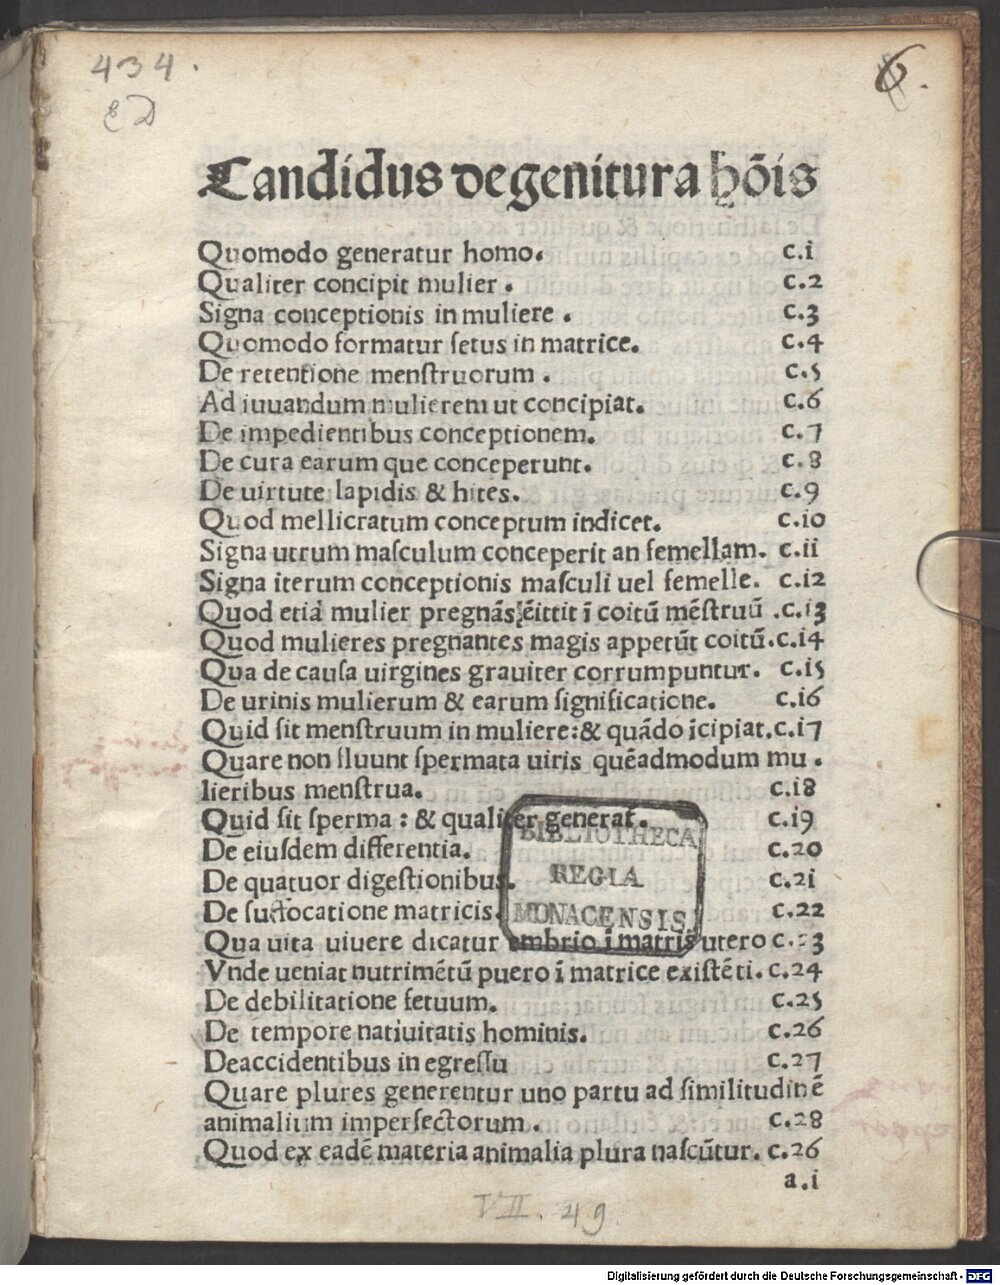 434.
ED
6.
Candidus de genitura hōis
Quomodo generatur homo. c.i
Qualiter concipit mulier . c.2
Signa conceptionis in muliere . c.3
Quomodo formatur fetus in matrice. c.4
De retentione menſtruorum . c.5
Ad iuuandum mulierem ut concipiat. c.6
De impedientibus conceptionem. c.7
De cura earum que conceperunt. c.8
De uirtute lapidis & hites. c.9
Quod mellicratum conceptum indicet. c.io
Signa utrum maſculum conceperit an femellam. c.ii
Signa iterum conceptionis maſculi uel femelle. c.i2
Quod etiā mulier pregnās ēittit ī coitū mēſtruū .c.i3
Quod mulieres pregnantes magis appetūt coitū.c.i4
Qua de cauſa uirgines grauiter corrumpuntur. c.i5
De urinis mulierum & earum ſignificatione. c.i6
Quid ſit menſtruum in muliere:& quādo īcipiat.c.i7
Quare non fluunt ſpermata uiris quēadmodum mu .
lieribus menſtrua. c.i8
Quid ſit ſperma : & qualiter generat̄. c.i9
De eiuſdem differentia. c.20
De quatuor digeſtionibus. c.2i
De ſuffocatione matricis. c.22
Qua uita uiuere dicatur embrio ī matris utero c.23
Vnde ueniat nutrimētū puero ī matrice exiſtēti. c.24
De debilitatione fetuum. c.25
De tempore natiuitatis hominis. c.26
Deaccidentibus in egreſſu c.27
Quare plures generentur uno partu ad ſimilitudinē
animalium imperfectorum . c.28
Quod ex eadē materia animalia plura naſcūtur. c.26
a.i
BIBLIOTHECA
REGIA
MONACENSIS.
VII. 49
Digitalisierung gefördert durch die Deutsche Forschungsgemeinschaft - DFG